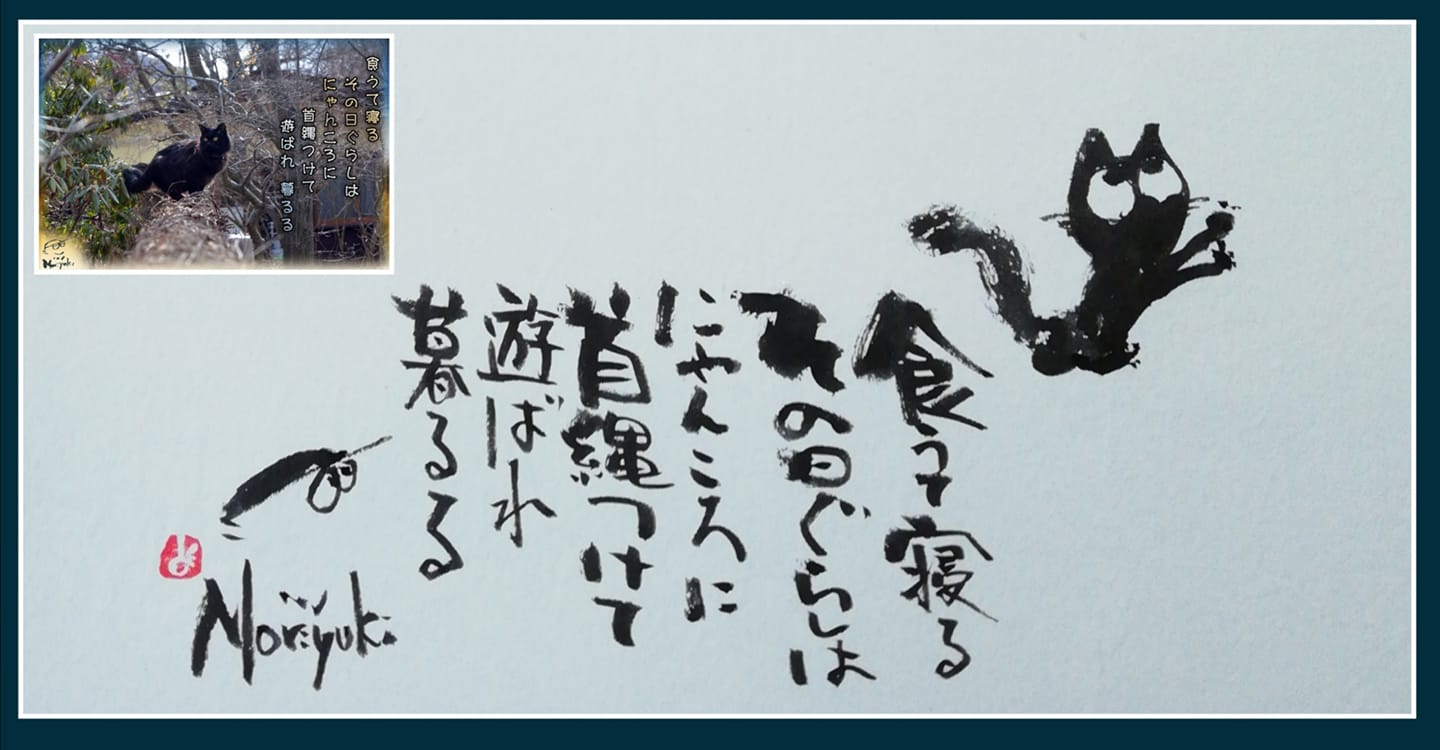 食うて寝る
その日ぐらしは
にゃんころに
首縄つけて
遊ばれ 暮るる
Noriyuki
食うて寝る
その日ぐらしは
にゃんころに
首縄つけて
遊ばれ
暮るる
Noriyuki